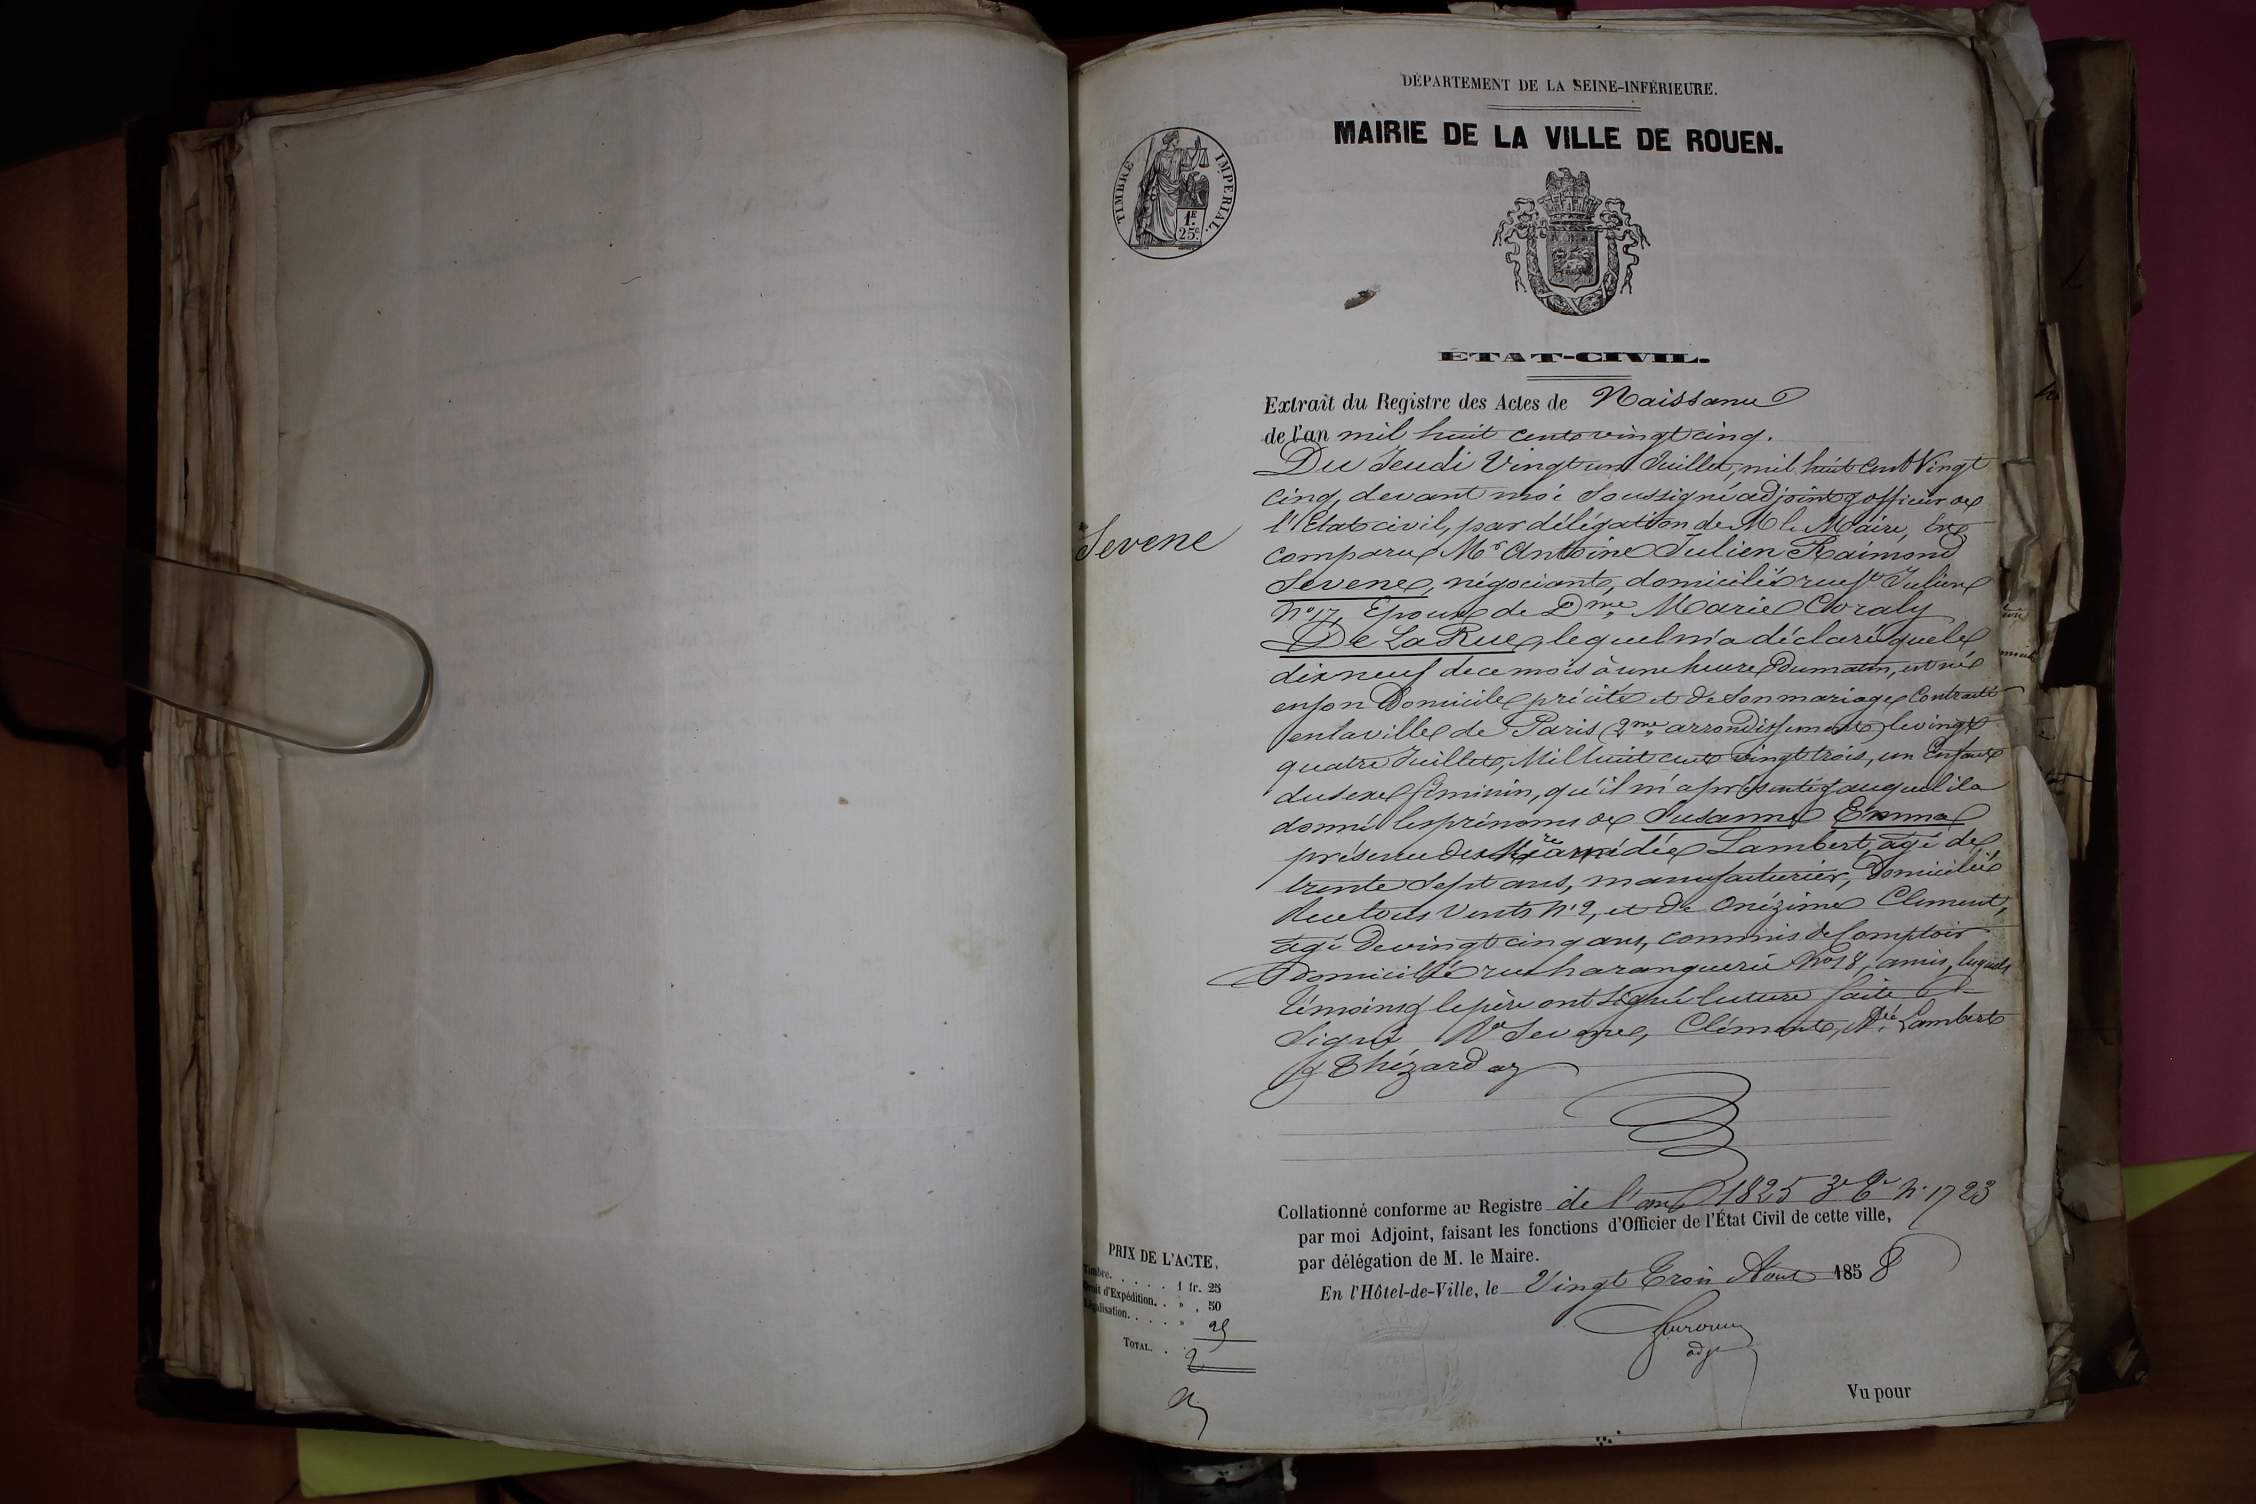 DÉPARTEMENT DE LA SEINE-INFÉRIEURE.
MAIRIE DE LA VILLE DE ROUEN.
TIMBRE IMPERIAL.
1F.
25c.
ÉTAT-CIVIL.
Extrait du Registre des Actes de Naissance
de l'an mil huit cent vingt cinq.
Du Jeudi Vingt un Juillet, mil huit cent Vingt
cinq, devant moi Soussigné adjoint & officier de
l'Etat civil, par délégation de M le Maire, est
Sevene
comparu Mr Antoine Julien Raimond
Sevene, négociant, domicilié rue St Julien
No 17, Epoux de Dme Marie Coraly
De La Rue, lequel m'a déclaré que le
dix neuf de ce mois à une heure du matin, est né
en son Domicile précité et de son mariage Contracté
en la ville de Paris (2me arrondissement) le vingt
quatre Juillet, Mil huit cent vingt trois, un Enfant
du sexe féminin, qu'il m'a présenté & auquel il a
donné les prénoms de Susanne Emma
présence de amédée Lambert, agé de
trente Sept ans, manufacturier, Domicilié
Rue tous Vents No 2, et de Onézime Clement,
agé De vingt cinq ans, commis de Comptoir
Domicilié rue haranguerie No 18, amis, lesquels
témoins & le père ont Signé lecture faite
Signé Sevene, Clément, Lambert
& Thézard
Collationné conforme au Registre de l'an 1825 3e No 1723
par moi Adjoint, faisant les fonctions d'Officier de l'État Civil de cette ville,
par délégation de M. le Maire.
En l'Hôtel-de-Ville, le Vingt Trois Aout 1858
adjt
PRIX DE L'ACTE.
Timbre. . . . . . 1 fr. 25
Droit d'Expédition. . » . 50
Légalisation. . . . . » 25
TOTAL. . . 2
Vu pour